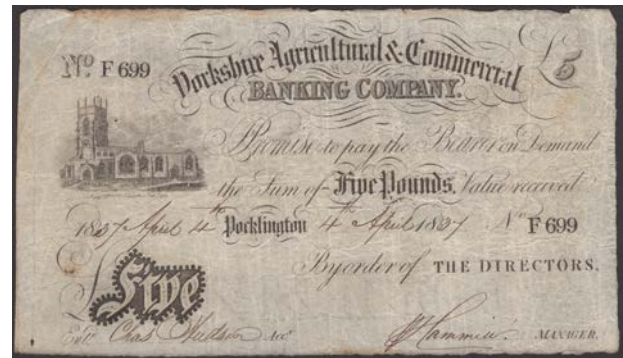 No F 699 Yorkshire Agricultural & Commercial £5
BANKING COMPANY.
Promise to pay the Bearer on Demand
the Sum of Five Pounds. Value received
1837 April 4th Pocklington 4th April 1837 No F 699
By order of THE DIRECTORS.
£ Five
Entd Chas Hudson Acct MANAGER.